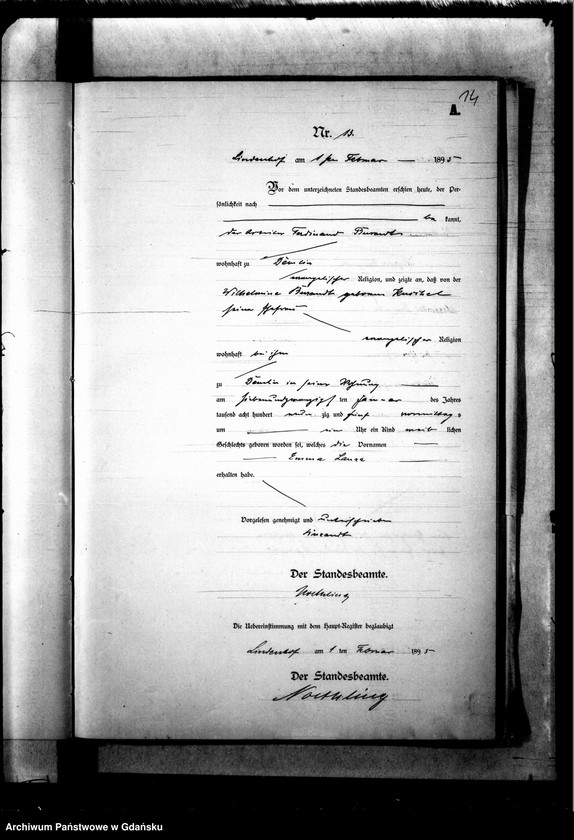 14
A.
Nr. 13.
Lindenhof am 1 ten Februar 1895
Vor dem unterzeichneten Standesbeamten erschien heute, der Per-
sönlichkeit nach
be kannt,
der Arbeiter Ferdinand
wohnhaft zu
evangelischer Religion, und zeigte an, daß von der
Wilhelmine geborenen
seine Ehefrau
evangelischer Religion
wohnhaft bei ihm
zu in seiner Wohnung
am siebenundzwanzigsten Januar des Jahres
tausend acht hundert neun zig und fünf vormittags
um ein Uhr ein Kind weib lichen
Geschlechts geboren worden sei, welches die Vornamen
Emma
erhalten habe.
Vorgelesen genehmigt und unterschrieben
Der Standesbeamte.
Noethling
Die Uebereinstimmung mit dem Haupt-Register beglaubigt
Lindenhof am 1 ten Februar 1895
Der Standesbeamte.
Noethling
Archiwum Państwowe w Gdańsku